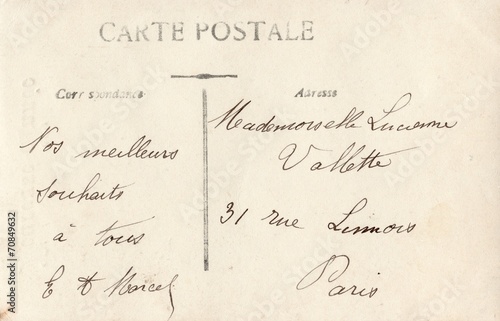 CARTE POSTALE
Correspondance
Adresse
Nos meilleurs
souhaits
à tous
E et Marcel
Mademoiselle Lucienne
Vallette
31 rue Linnois
Paris
Adobe Stock | #70849632